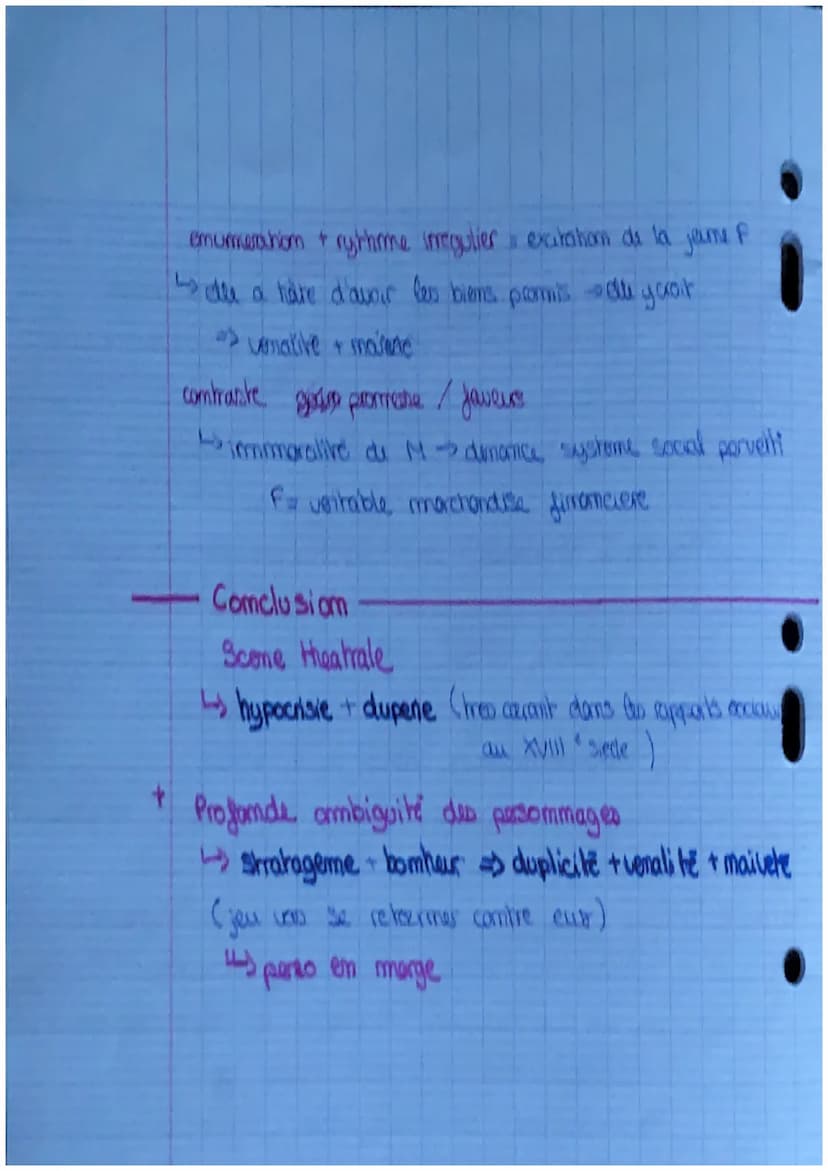 enumeration + rythme irregulier = excitation de la jeune F
↳ elle a hâte d'avoir les biens promis → elle y croit
⇒ venalité + naiveté
contraste promesse / faveurs
↳ immoralité du M → dénonce systeme social perverti
F = veritable marchandise financiere
Conclusion
Scene theatrale
↳ hypocrisie + duperie (tres courant dans les rapports sociaux
au XVIII e siecle)
+ Profonde ambiguité des personnages
↳ stratageme + bonheur ⇒ duplicité + venalité + naiveté
(jeu va se retourner contre eux)
↳ perso en marge